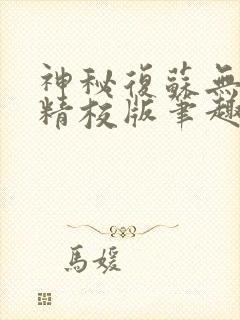 神秘復蘇無
精校版筆趣
馬媛